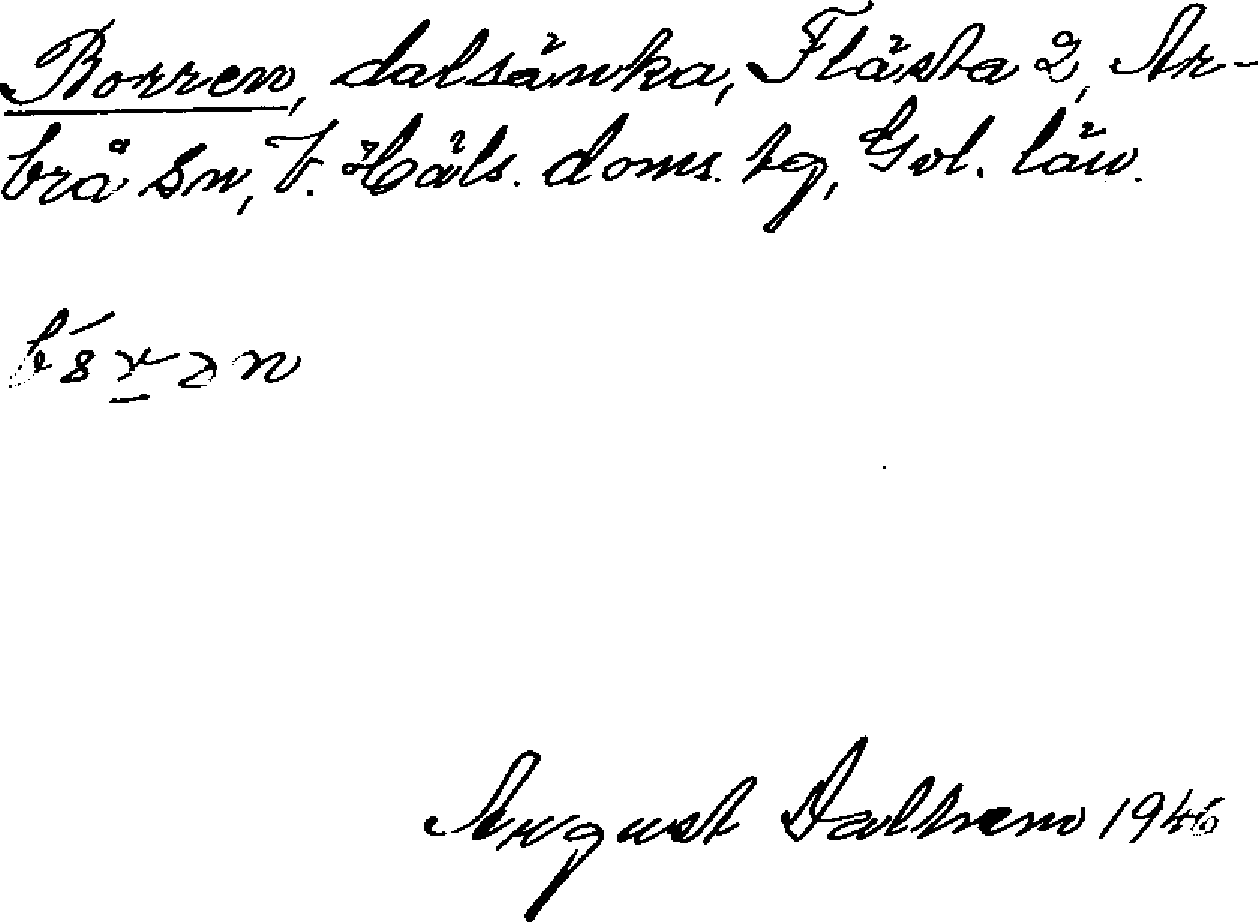 Borren, dalsänka, Flästa 2, Ar-
brå Sn, V. Häls. doms. tg, Gvl. län.
August Dalhem 1946